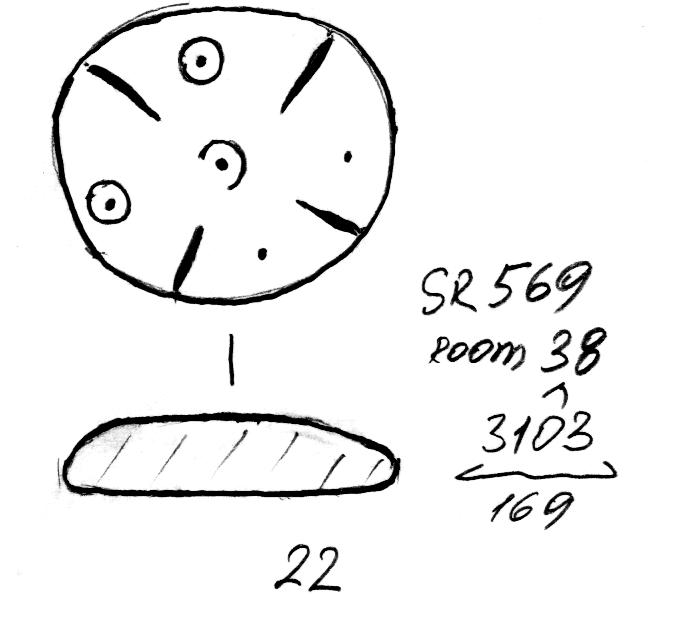 SR 569
room 38
3103
169
22